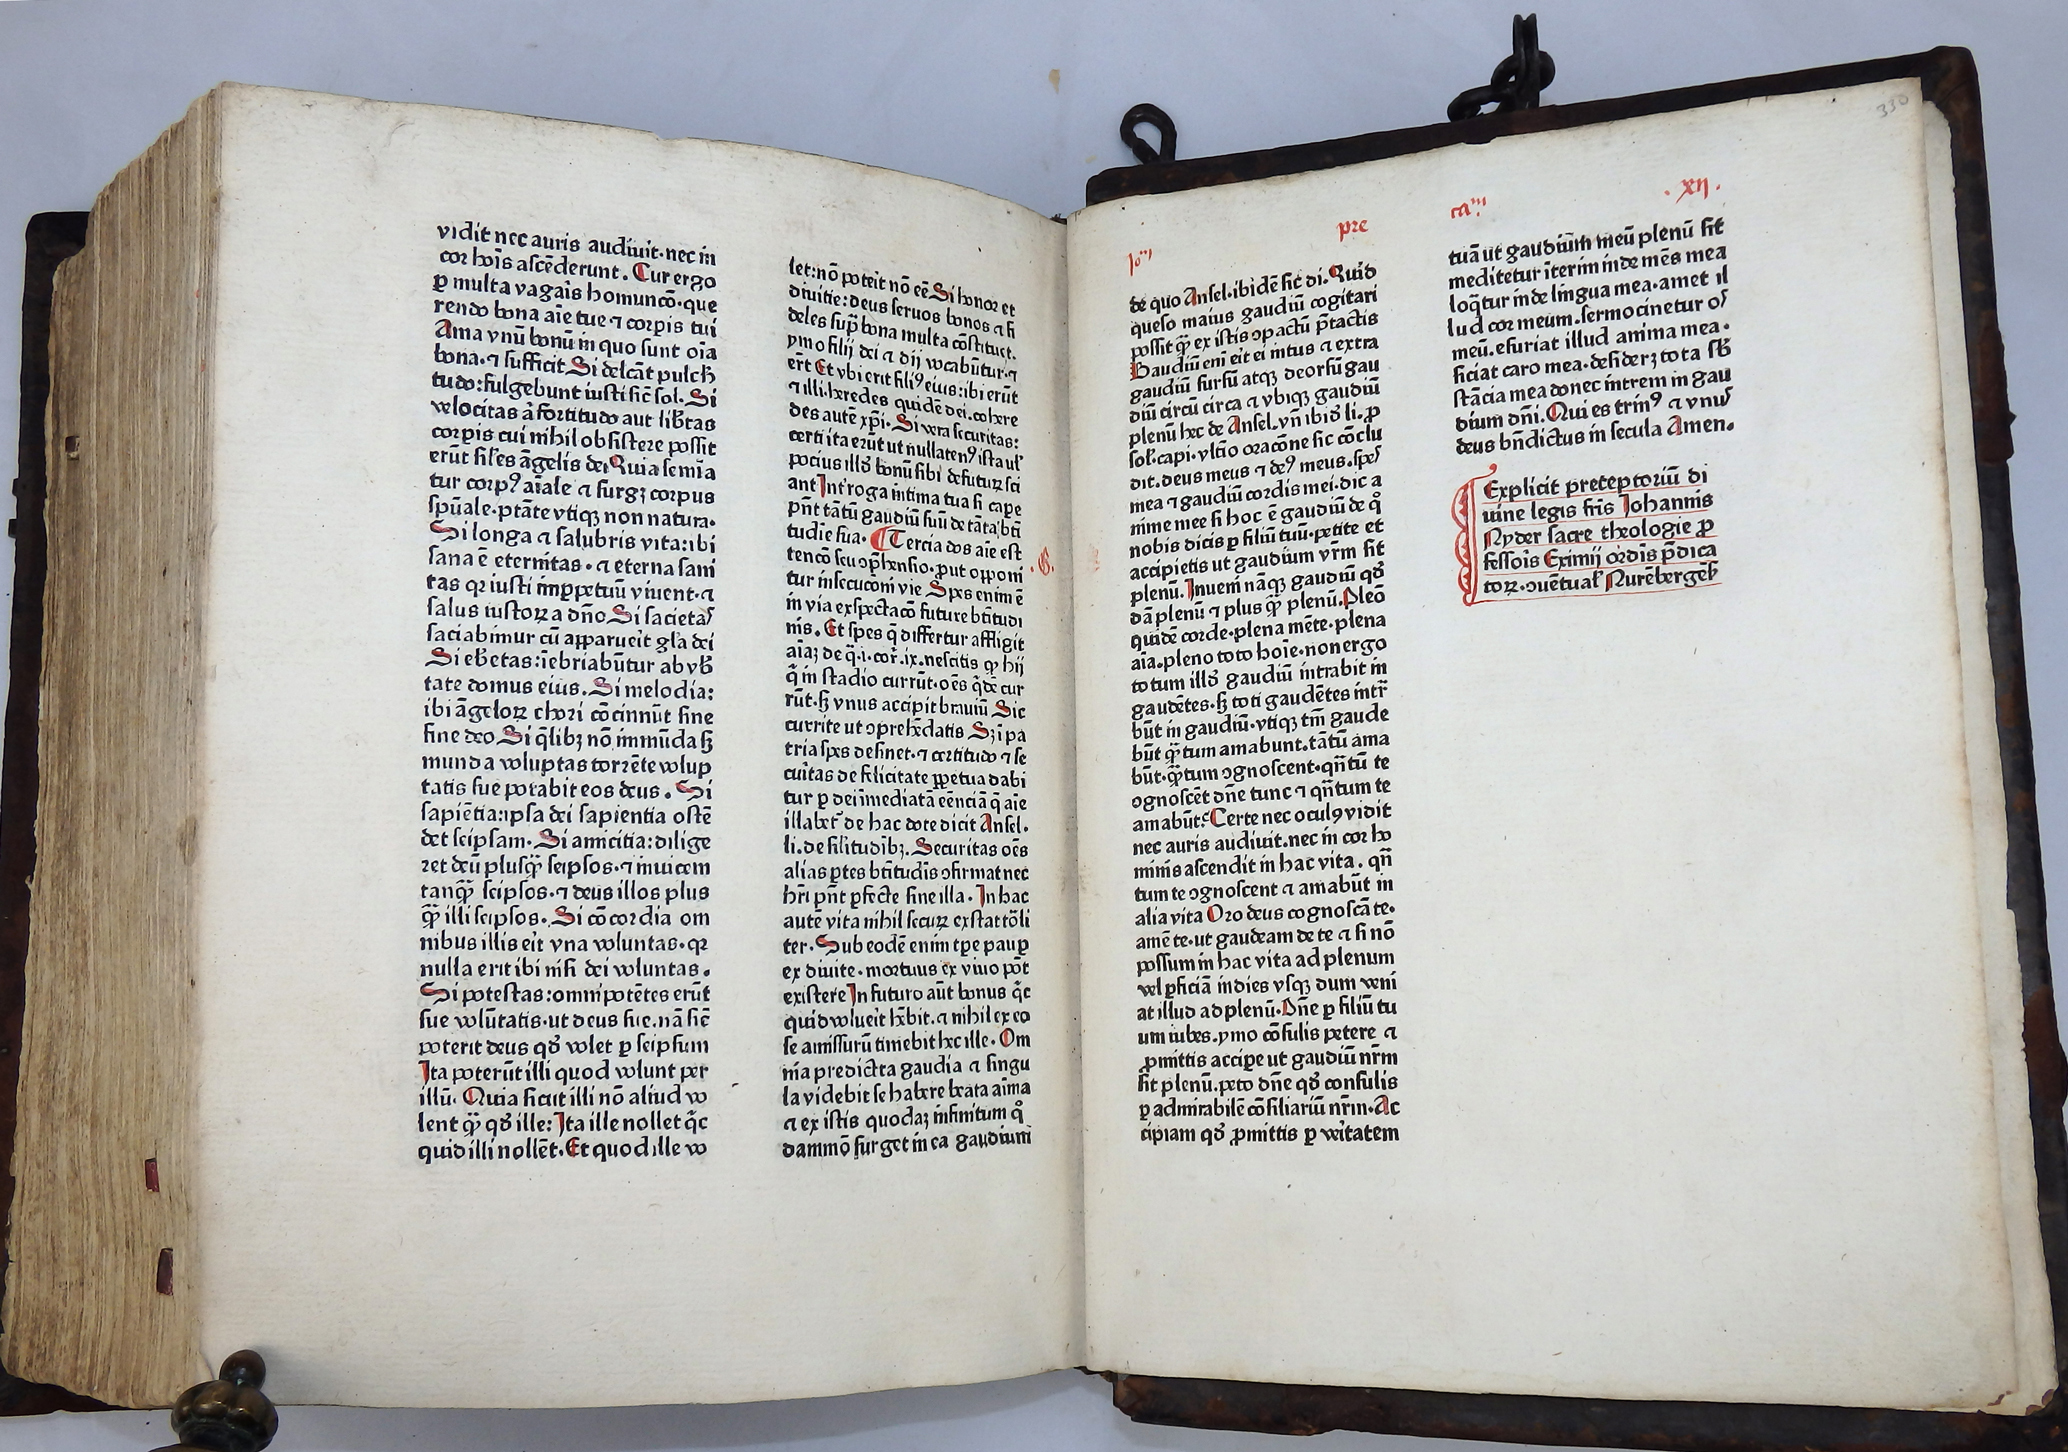 vidit nec auris audiuit·nec in
cor hoīs ascēderunt. Cur ergo
ꝑ multa vagaris homuncō·que
rendo bona aīe tue ⁊ corꝑis tui
Ama vnū bonū in quo sunt oīa
bona·⁊ sufficit Si delcāt pulch̄
tudo:fulgebunt iusti sic̄ sol. Si
velocitas aƚ fortitudo aut lib̄tas
corꝑis cui nihil obsistere possit
erūt sil̄es āgelis dei Quia semīa
tur corpꝰ aīale ⁊ surgꝫ corpus
spūale·ptāte vtiqꝫ non natura·
Si longa ⁊ salubris vita:ibi
sana ē eternitas·⁊ eterna sani
tas qꝛ iusti imꝑpetuū viuent·⁊
salus iustoꝝ a dn̄o Si sacietas
saciabimur cū apparueīt gl̄a dei
Si eb̄etas:īebriabūtur ab vb̄
tate domus eius. Si melodia:
ibi āgeloꝝ chori cōcinnūt sine
fine deo Si q̄libꝫ nō īmmūda sꝫ
munda voluptas torrēte volup
tatis sue potabit eos deus. Si
sapiētia:ipsa dei sapientia ostē
det seipsam. Si amicitia:dilige
ret deū plusqꝫ̄ seipsos·⁊ inuicem
tanqꝫ̄ seipsos·⁊ deus illos plus
qꝫ̄ illi seipsos. Si cōcordia om
nibus illis eīt vna voluntas·qꝛ
nulla erit ibi nisi dei voluntas.
Si potestas:omnipotētes erūt
sue volūtatis·ut deus sue.nā sic̄
poterit deus qd̄ volet ꝑ seipsum
Ita poterūt illi quod volunt per
illū. Quia sicut illi nō aliud vo
lent qꝫ̄ qd̄ ille: Ita ille nollet q̄c
quid illi nollēt. Et quod ille vo
let:nō poteīt nō eē Si honor et
diuitie:deus seruos bonos ⁊ fi
deles supͣ bona multa cōstituet.
ymo filij dei ⁊ dij vocabūtur·⁊
ert̄ Et vbi erit filiꝰ eius:ibi erūt
⁊ illi·heredes quidē dei.cohere
des autē xp̄i. Si vera securitas:
certi ita erūt ut nullatenꝰ ista ul̄
pocius illd̄ bonū sibi defuturꝫ sci
ant Int̄roga intima tua si cape
pn̄t tātū gaudiū suū de tāta bt̄i
tudīe sua. ¶ Tercia dos aīe est
tencō seu ꝯp̄hensio·ꝓut opponi
tur insecucōni vie Spes enim ē
in via exspectacō future bt̄itudi
nis. Et spes q̄ differtur affligit
aīaꝫ de q̄.i.cor̄.ix.nescitis qꝙ hij
q̄ in stadio currūt·oēs q̄dē cur
rūt·sꝫ vnus accipit brauiū Sic
currite ut ꝯprehēdatis Sꝫ ī pa
tria spes desinet·⁊ certitudo ⁊ se
cuītas de felicitate ꝑpetua dabi
tur ꝑ dei īmediatā eēnciā q̄ aīe
illabet᷑ de hac dote dicit Ansel.
li.de sil̄itudībꝫ. Securitas oēs
alias ptes bt̄itudīs ꝯfirmat nec
hr̄i pn̄t ꝑfecte sine illa. In hac
autē vita nihil securꝫ exstat tōli
ter. Sub eodē enim tp̄e pauꝑ
ex diuite·mortuus ex viuo pōt
existere In futuro aūt bonus q̄c
quid volueīt hēbit.⁊ nihil ex eo
se amissurū timebit hec ille. Om
nia predicta gaudia ⁊ singu
la videbit se habere beata anīma
⁊ ex istis quodaꝫ infinitum qͦ
dammō surget in ea gaudium
·G·
Joⁿⁱ
pre
caᵐ
·xij·
de quo Ansel.ibidē sic di. Quid
queso maius gaudiū cogitari
possit qꝫ̄ ex istis ꝯpactū p̄tactis
Gaudiū eni eīt ei intus ⁊ extra
gaudiū sursū atqꝫ deorsū gau
diū circū circa ⁊ vbiqꝫ gaudiū
plenū hec de Ansel.vn̄ ibid̄ li.ꝓ
sol.capi.vltīo oracōne sic cōclu
dit.deus meus ⁊ deꝰ meus.spes
mea ⁊ gaudiū cordis mei.dic a
nime mee si hoc ē gaudiū de qͦ
nobis dicis ꝑ filiū tuū·petite et
accipietis ut gaudium vr̄m sit
plenū. Inueni nāqꝫ gaudiū qd̄
dā plenū ⁊ plus qꝫ̄ plenū. Pleno
quidē corde·plena mēte·plena
aīa.pleno toto hoīe·non ergo
totum illd̄ gaudiū intrabit in
gaudētes·sꝫ toti gaudētes intr̄
būt in gaudiū·vtiqꝫ tm̄ gaude
būt qꝫ̄tum amabunt.tātū ama
būt·qꝫ̄tum ꝯgnoscent·qn̄tū te
ꝯgnoscēt dn̄e tunc ⁊ qn̄tum te
amabūt: Certe nec oculꝰ vidit
nec auris audiuit.nec in cor ho
minis ascendit in hac vita. qn̄
tum te ꝯgnoscent ⁊ amabūt in
alia vita Oro deus cognoscā te.
amē te·ut gaudeam de te ⁊ si nō
possum in hac vita ad plenum
vel ꝓficiā indies vsqꝫ dum veni
at illud ad plenū. Dn̄e ꝑ filiū tu
um iubes.ymo cōsulis petere ⁊
ꝓmittis accipe ut gaudiū nr̄m
sit plenū.peto dn̄e qd̄ consulis
ꝑ admirabilē cōsiliariū nr̄m. Ac
cipiam qd̄ ꝓmittis ꝑ veītatem
tuā ut gaudium meū plenū sit
meditetur īterim inde mēs mea
loq̄tur inde lingua mea·amet il
lud cor meum.sermocinetur os
meū.esuriat illud anima mea.
siciat caro mea·desiderꝫ tota sb̄
stācia mea donec intrem in gau
dium dn̄i. Qui es trinꝰ ⁊ vnus
deus bn̄dictus in secula Amen.
Explicit preceptoriū di
uine legis fr̄is Johannis
Nyder sacre theologie ꝓ
fessoīs Eximij ordīs p̄dica
toꝝ·ꝯuētual̄ Nurēbergēs̄
330